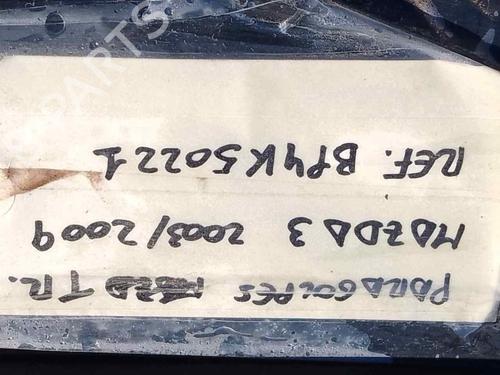 PARAGOLPES TR.
MAZDA 3 2003/2009
REF. BP4K50221
PARTS